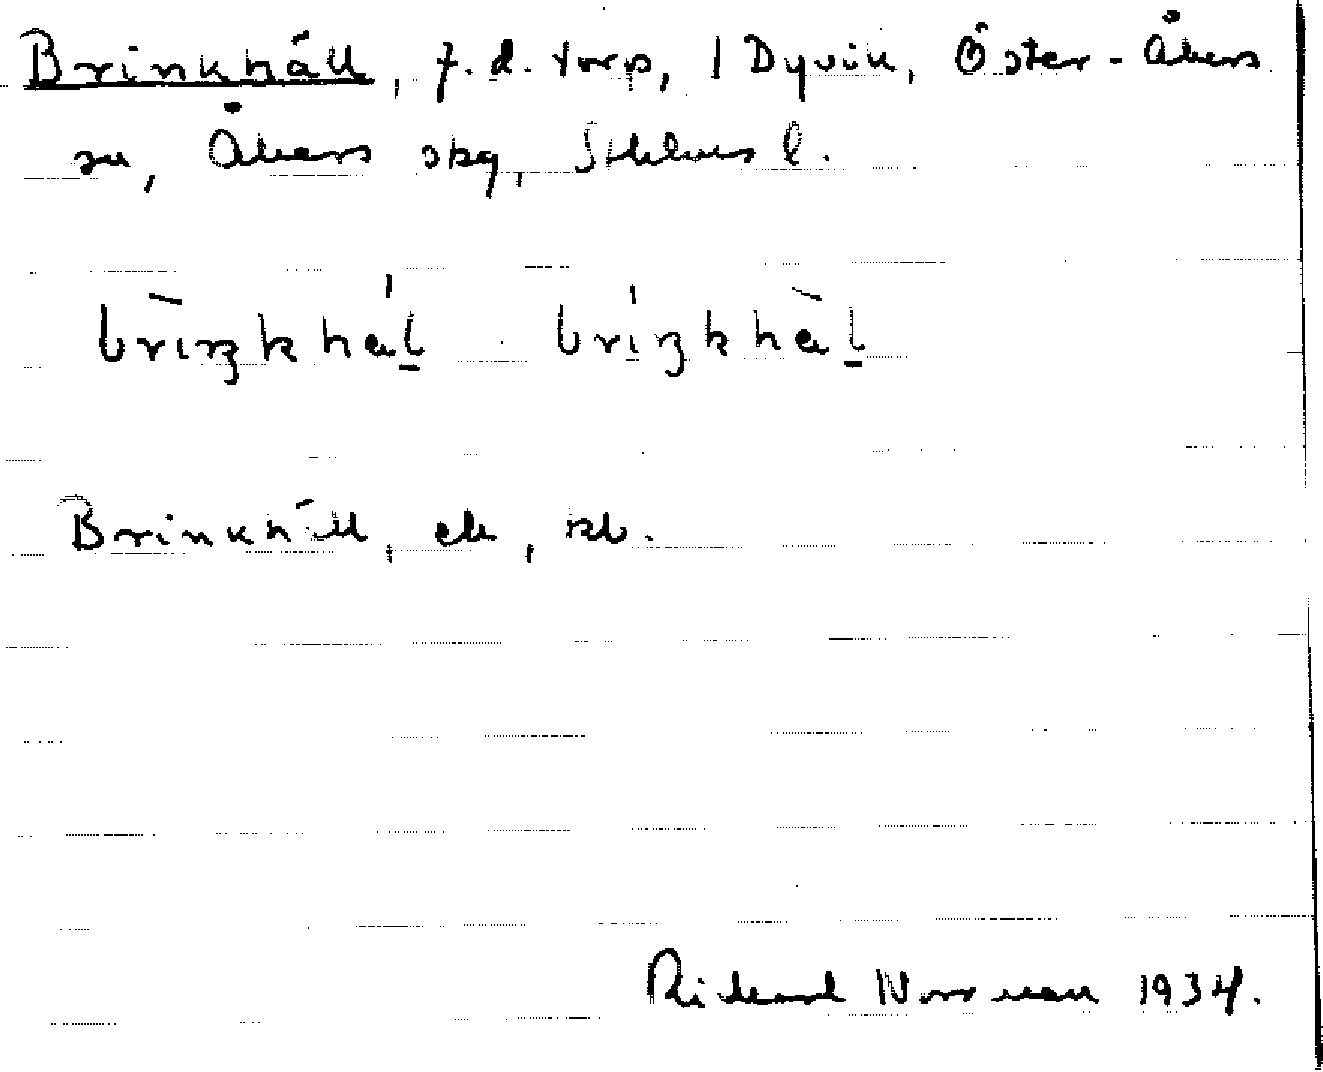 Brinkhäll, f.d. torp, 1 Dyvik, Öster-Åkers
sn, Åkers skg, Sthlms l.
brìŋkhál bríŋkhàl
Brinkhäll, ek, kb.
Rickard Norrman 1934.